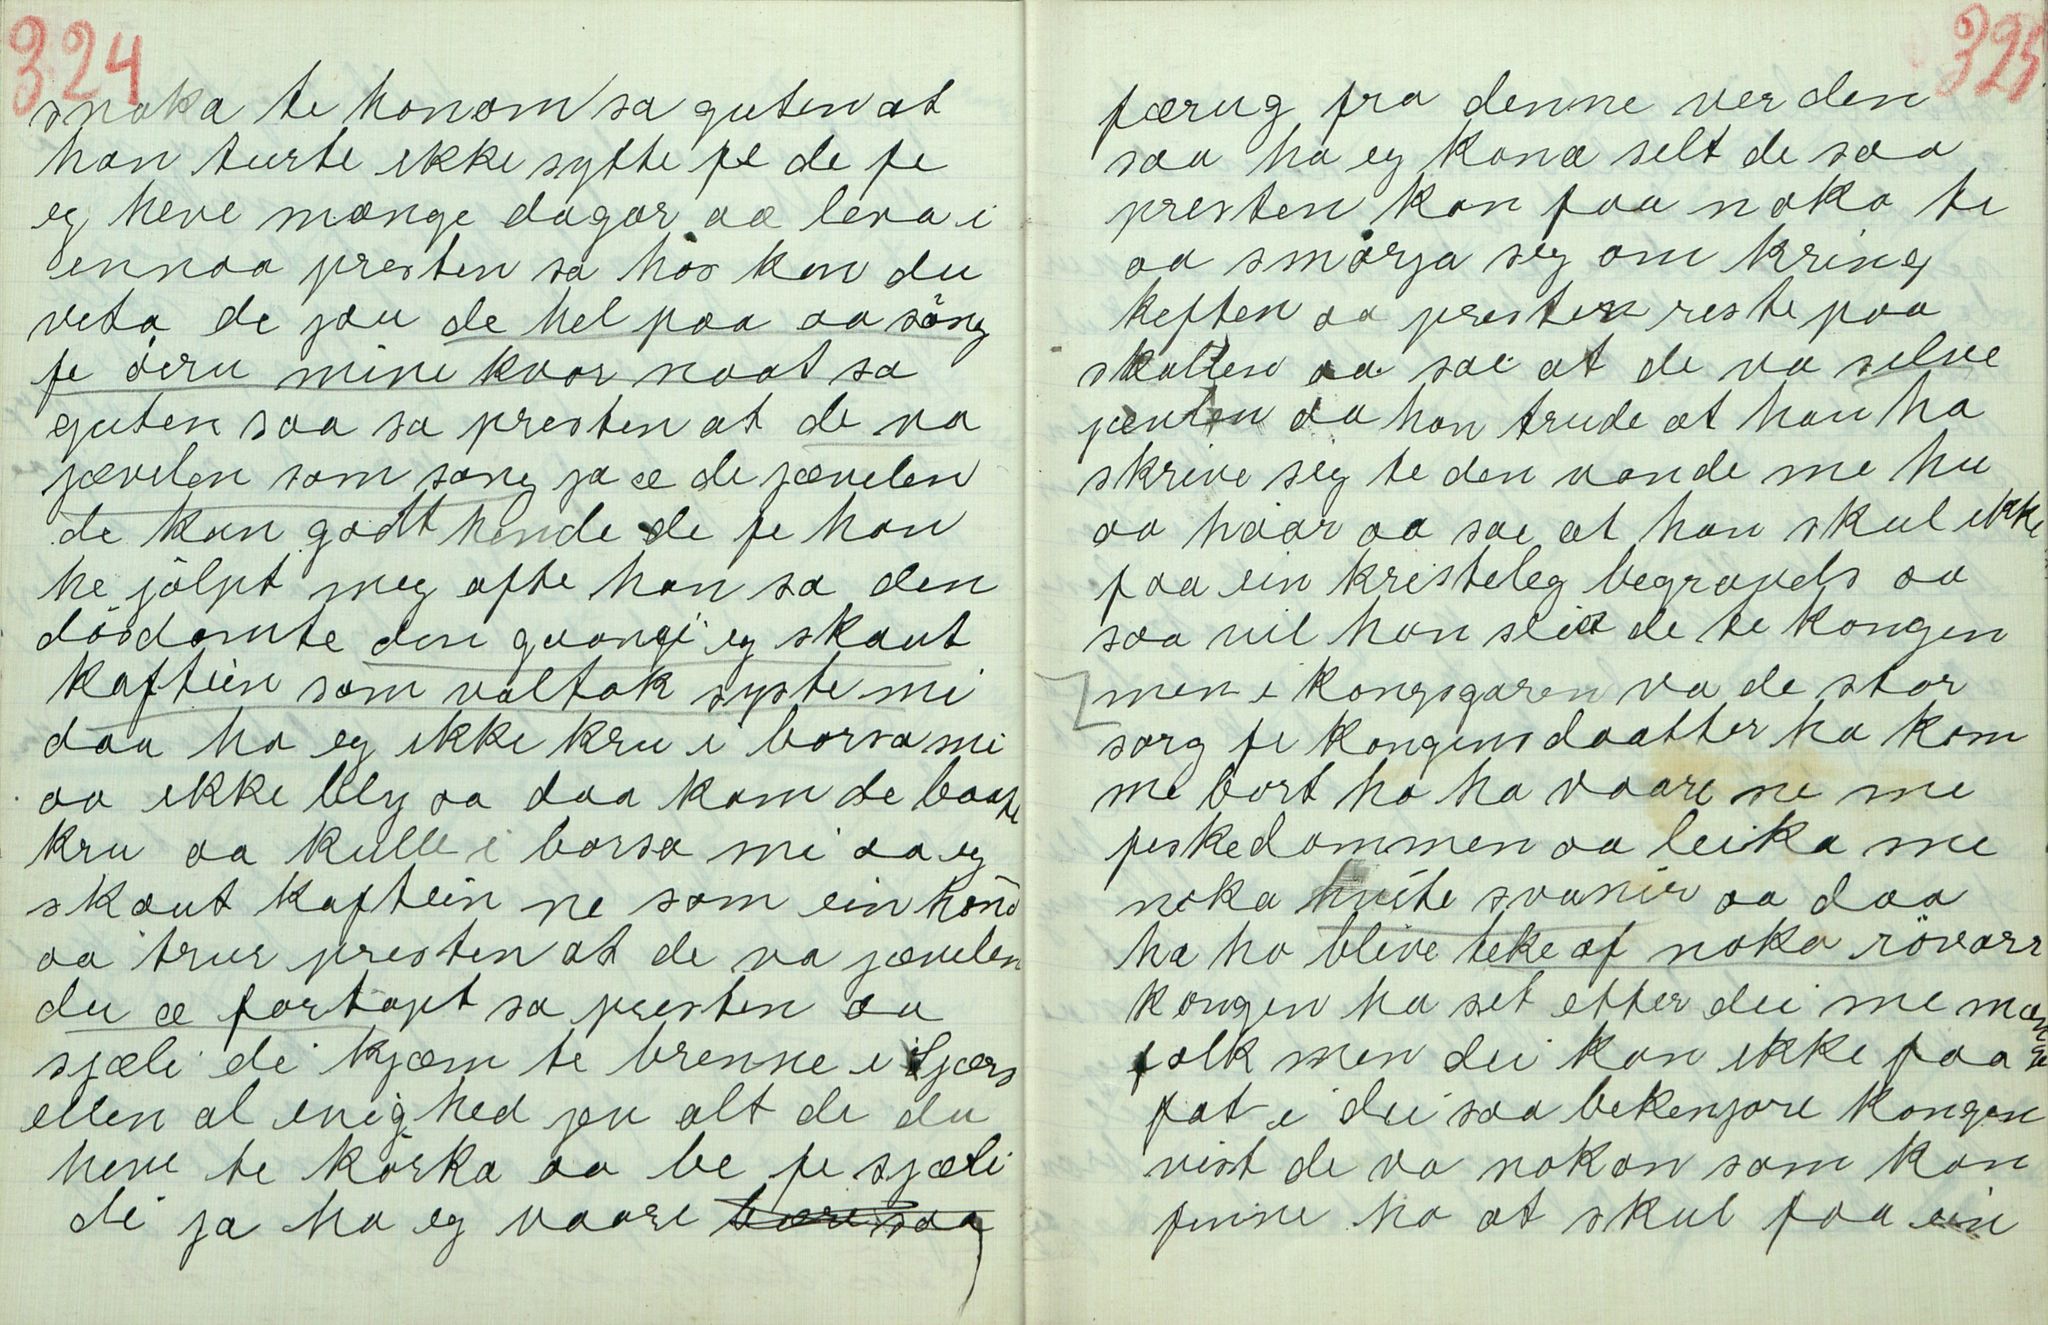 324
snaka te honom sa guten at
han turte ikke sytte fe de fe
eg heve mange dagar aa leva i
ennaa presten sa hos kan du
veta de jau de hel paa aa söng
fe öeru mine kvar naat sa
guten saa sa presten at de va
jævelen som song ja æ de jævelen
de kan godt hende de fe han
he jölpt meg ofte han sa den
dösdömte den gvongi eg skaut
kaftein som valtok syste mi
daa ha eg ikke kru i borsa mi
aa ikke bly sa daa kom de baate
kru aa kulle i borsa mi aa eg
skaut kaftein ne som ein hönd
aa trur presten at de va jævelen
du æ fortapt sa presten aa
sjæli di kjæm te brenne i
ellen al evighed jau alt de du
heve te körka aa be fe sjæli
di ja ha eg vaare
325
færug fra denne verden
saa ha eg kona selt de saa
presten kan faa noko te
aa smörja seg om kring
keften aa presten reste paa
skallen aa sae at de va selve
jævelen aa han trude at han ha
skrive seg te den vonde me hu
aa haar aa sae at han skul ikke
faa ein kristeleg begravels aa
saa vil han seia de te kongen
men i kongsgaren va de stor
sorg fe kongens daatter ha kom
me bort ho ha vaare ne me
feskedammen aa leika me
noka hvite svanir aa daa
ha ho blive teke af noka rövarr
kongen ha set etter dei me mange
folk men dei kan ikke faa
fat i dei saa bekenjore kongen
vist de va nokon som kan
finne ho at skul faa ein